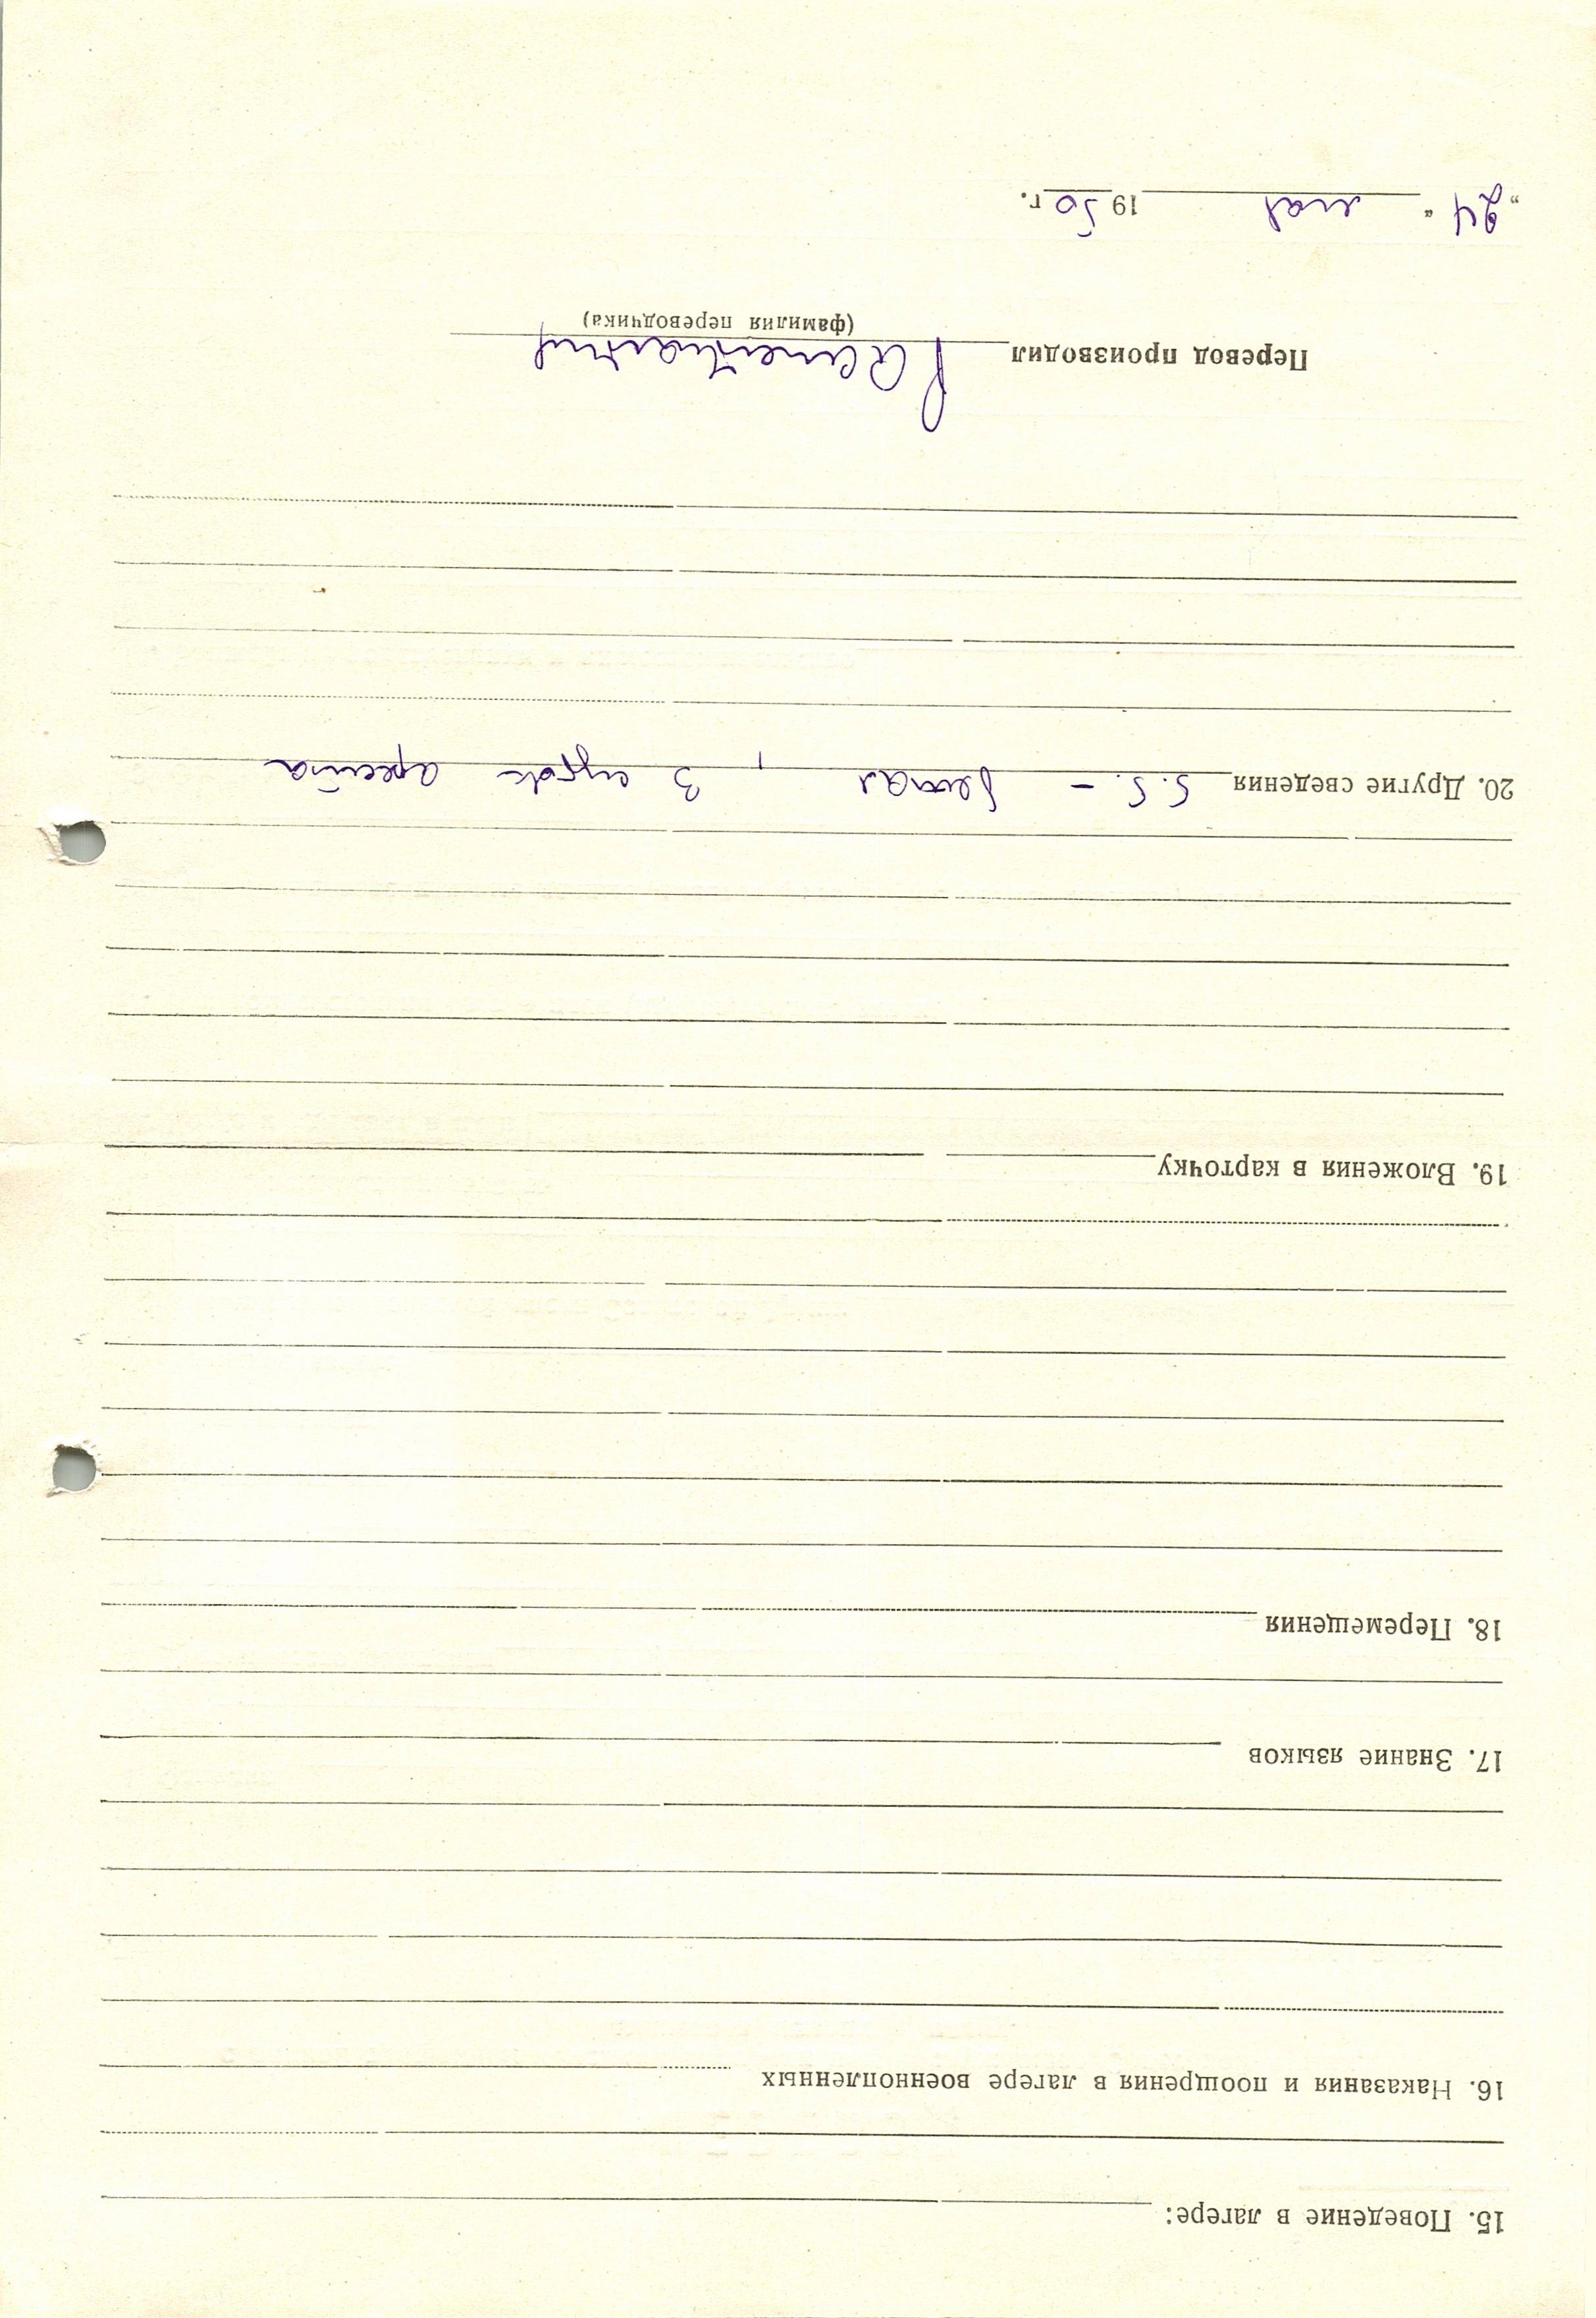 15. Поведение в лагере:
16. Наказания и поощрения в лагере военнопленных
17. Знание языков
18. Перемещения
19. Вложения в карточку
20. Другие сведения 5.5. – бежал, 3 суток ареста
Перевод производил
(фамилия переводчика)
„24“ мая 1950 г.